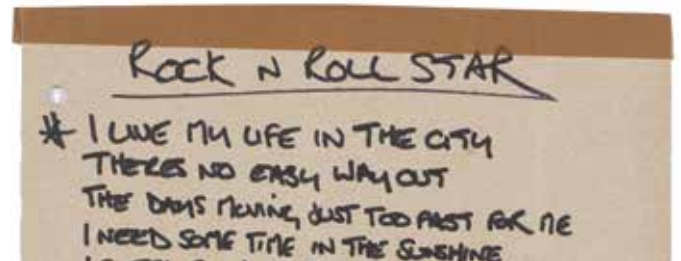 ROCK N ROLL STAR
* I LIVE MY LIFE IN THE CITY
THERES NO EASY WAY OUT
THE DAYS MOVING JUST TOO FAST FOR ME
I NEED SOME TIME IN THE SUNSHINE